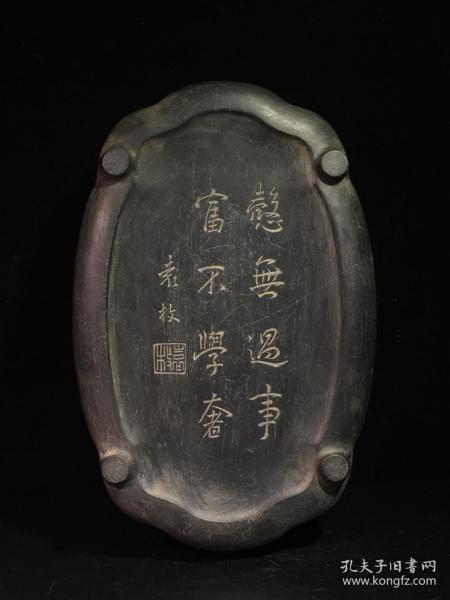 愨無過事
富不學奢
袁枚
袁枚
孔夫子旧书网
www.kongfz.com